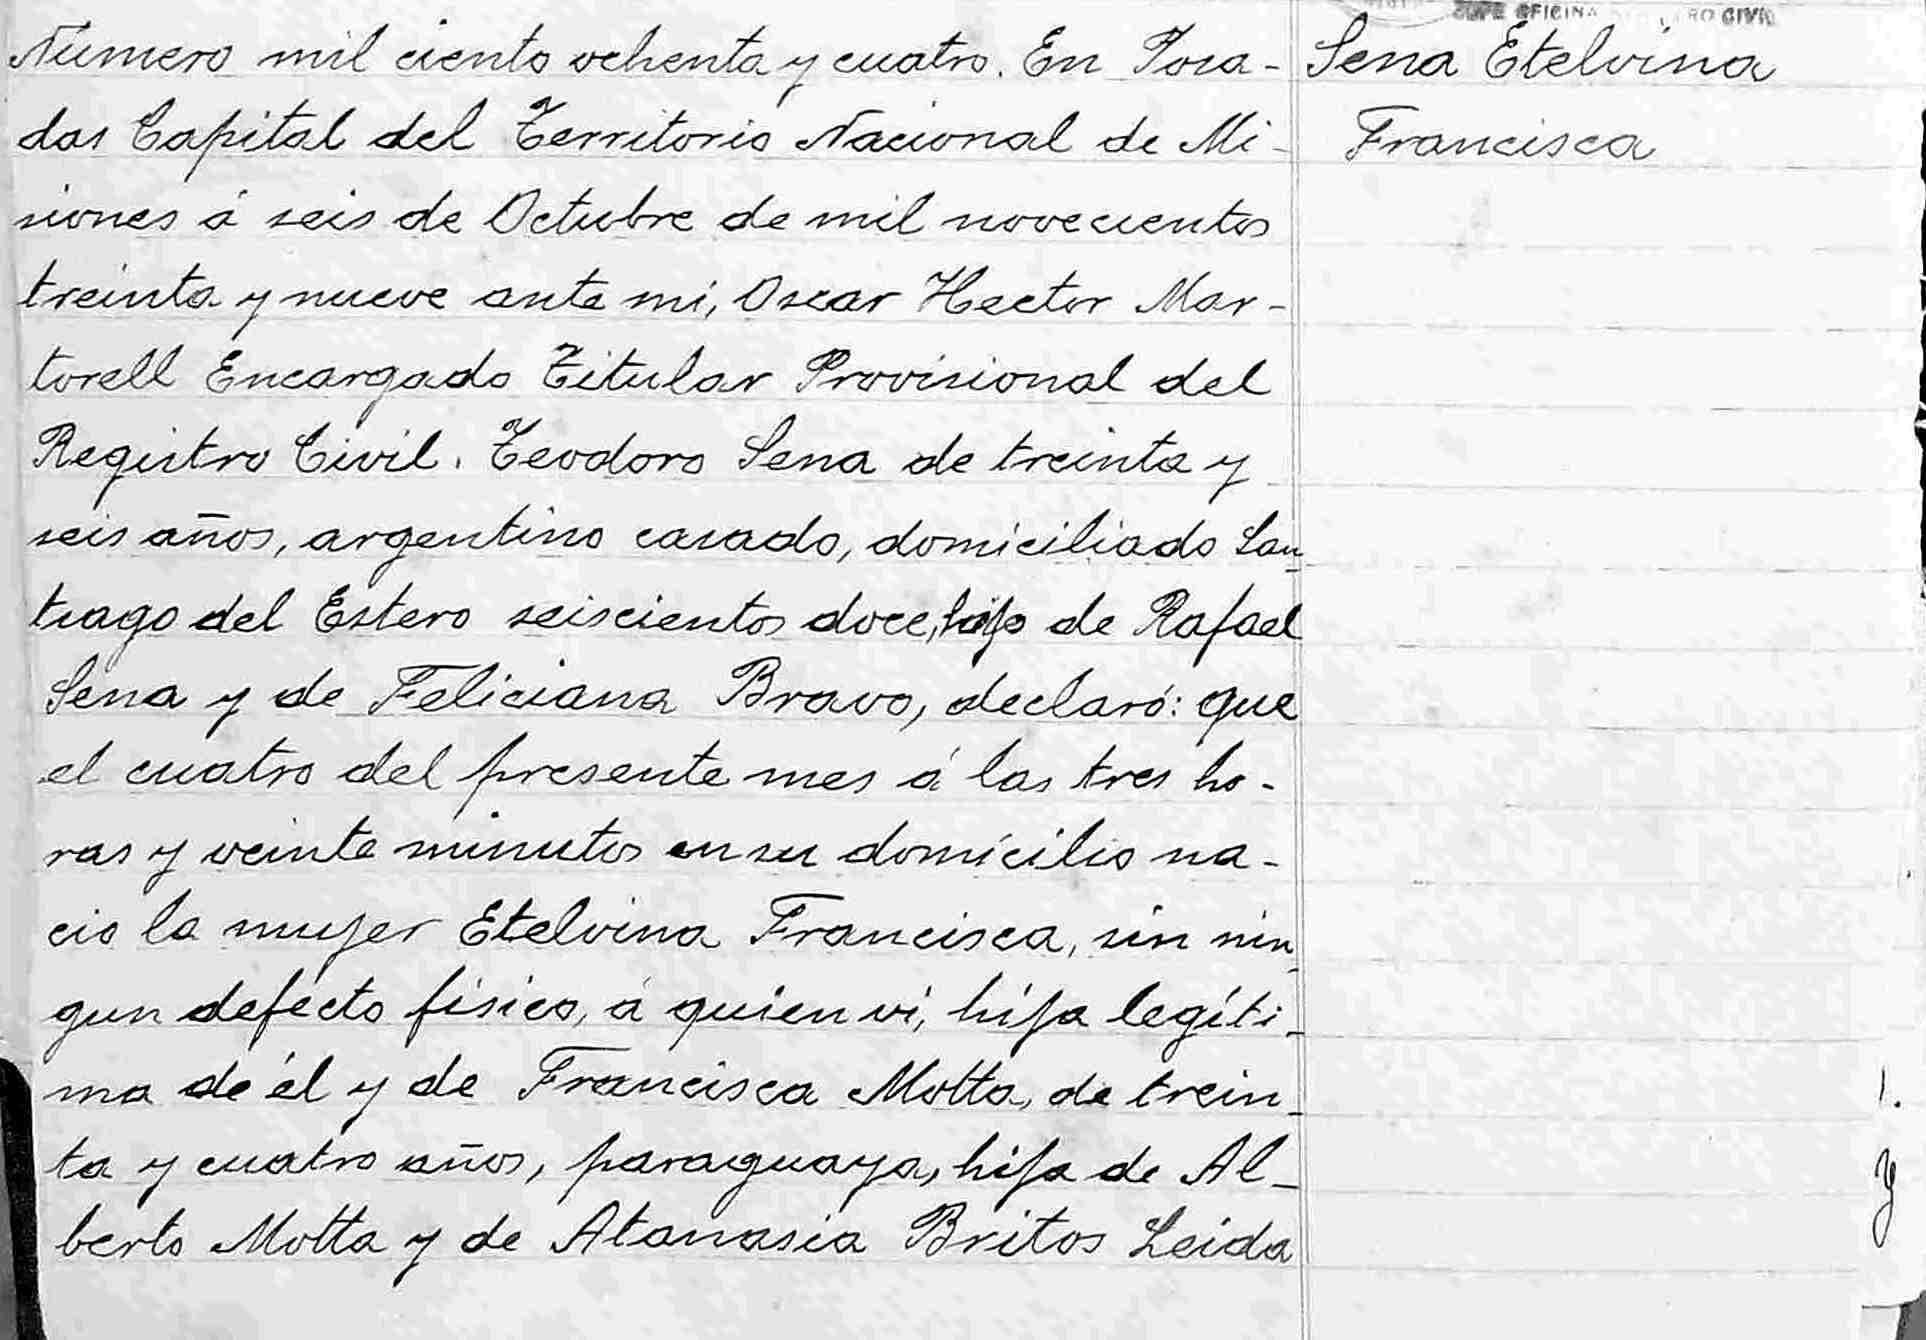 JEFE OFICINA REGISTRO CIVIL
Numero mil ciento ochenta y cuatro. En Posa-
das Capital del Territorio Nacional de Mi-
siones á seis de Octubre de mil novecientos
treinta y nueve ante mí, Oscar Hector Mar-
torell Encargado Titular Provisional del
Registro Civil. Teodoro Sena de treinta y
seis años, argentino casado, domiciliado San-
tiago del Estero seiscientos doce, hijo de Rafael
Sena y de Feliciana Bravo, declaró: que
el cuatro del presente mes á las tres ho-
ras y veinte minutos en su domicilio na-
cio la mujer Etelvina Francisca, sin nin-
gun defecto físico, á quien vi, hija legíti-
ma de él y de Francisca Motta, de trein-
ta y cuatro años, paraguaya, hija de Al-
berto Motta y de Atanasia Britos Leida
Sena Etelvina
Francisca